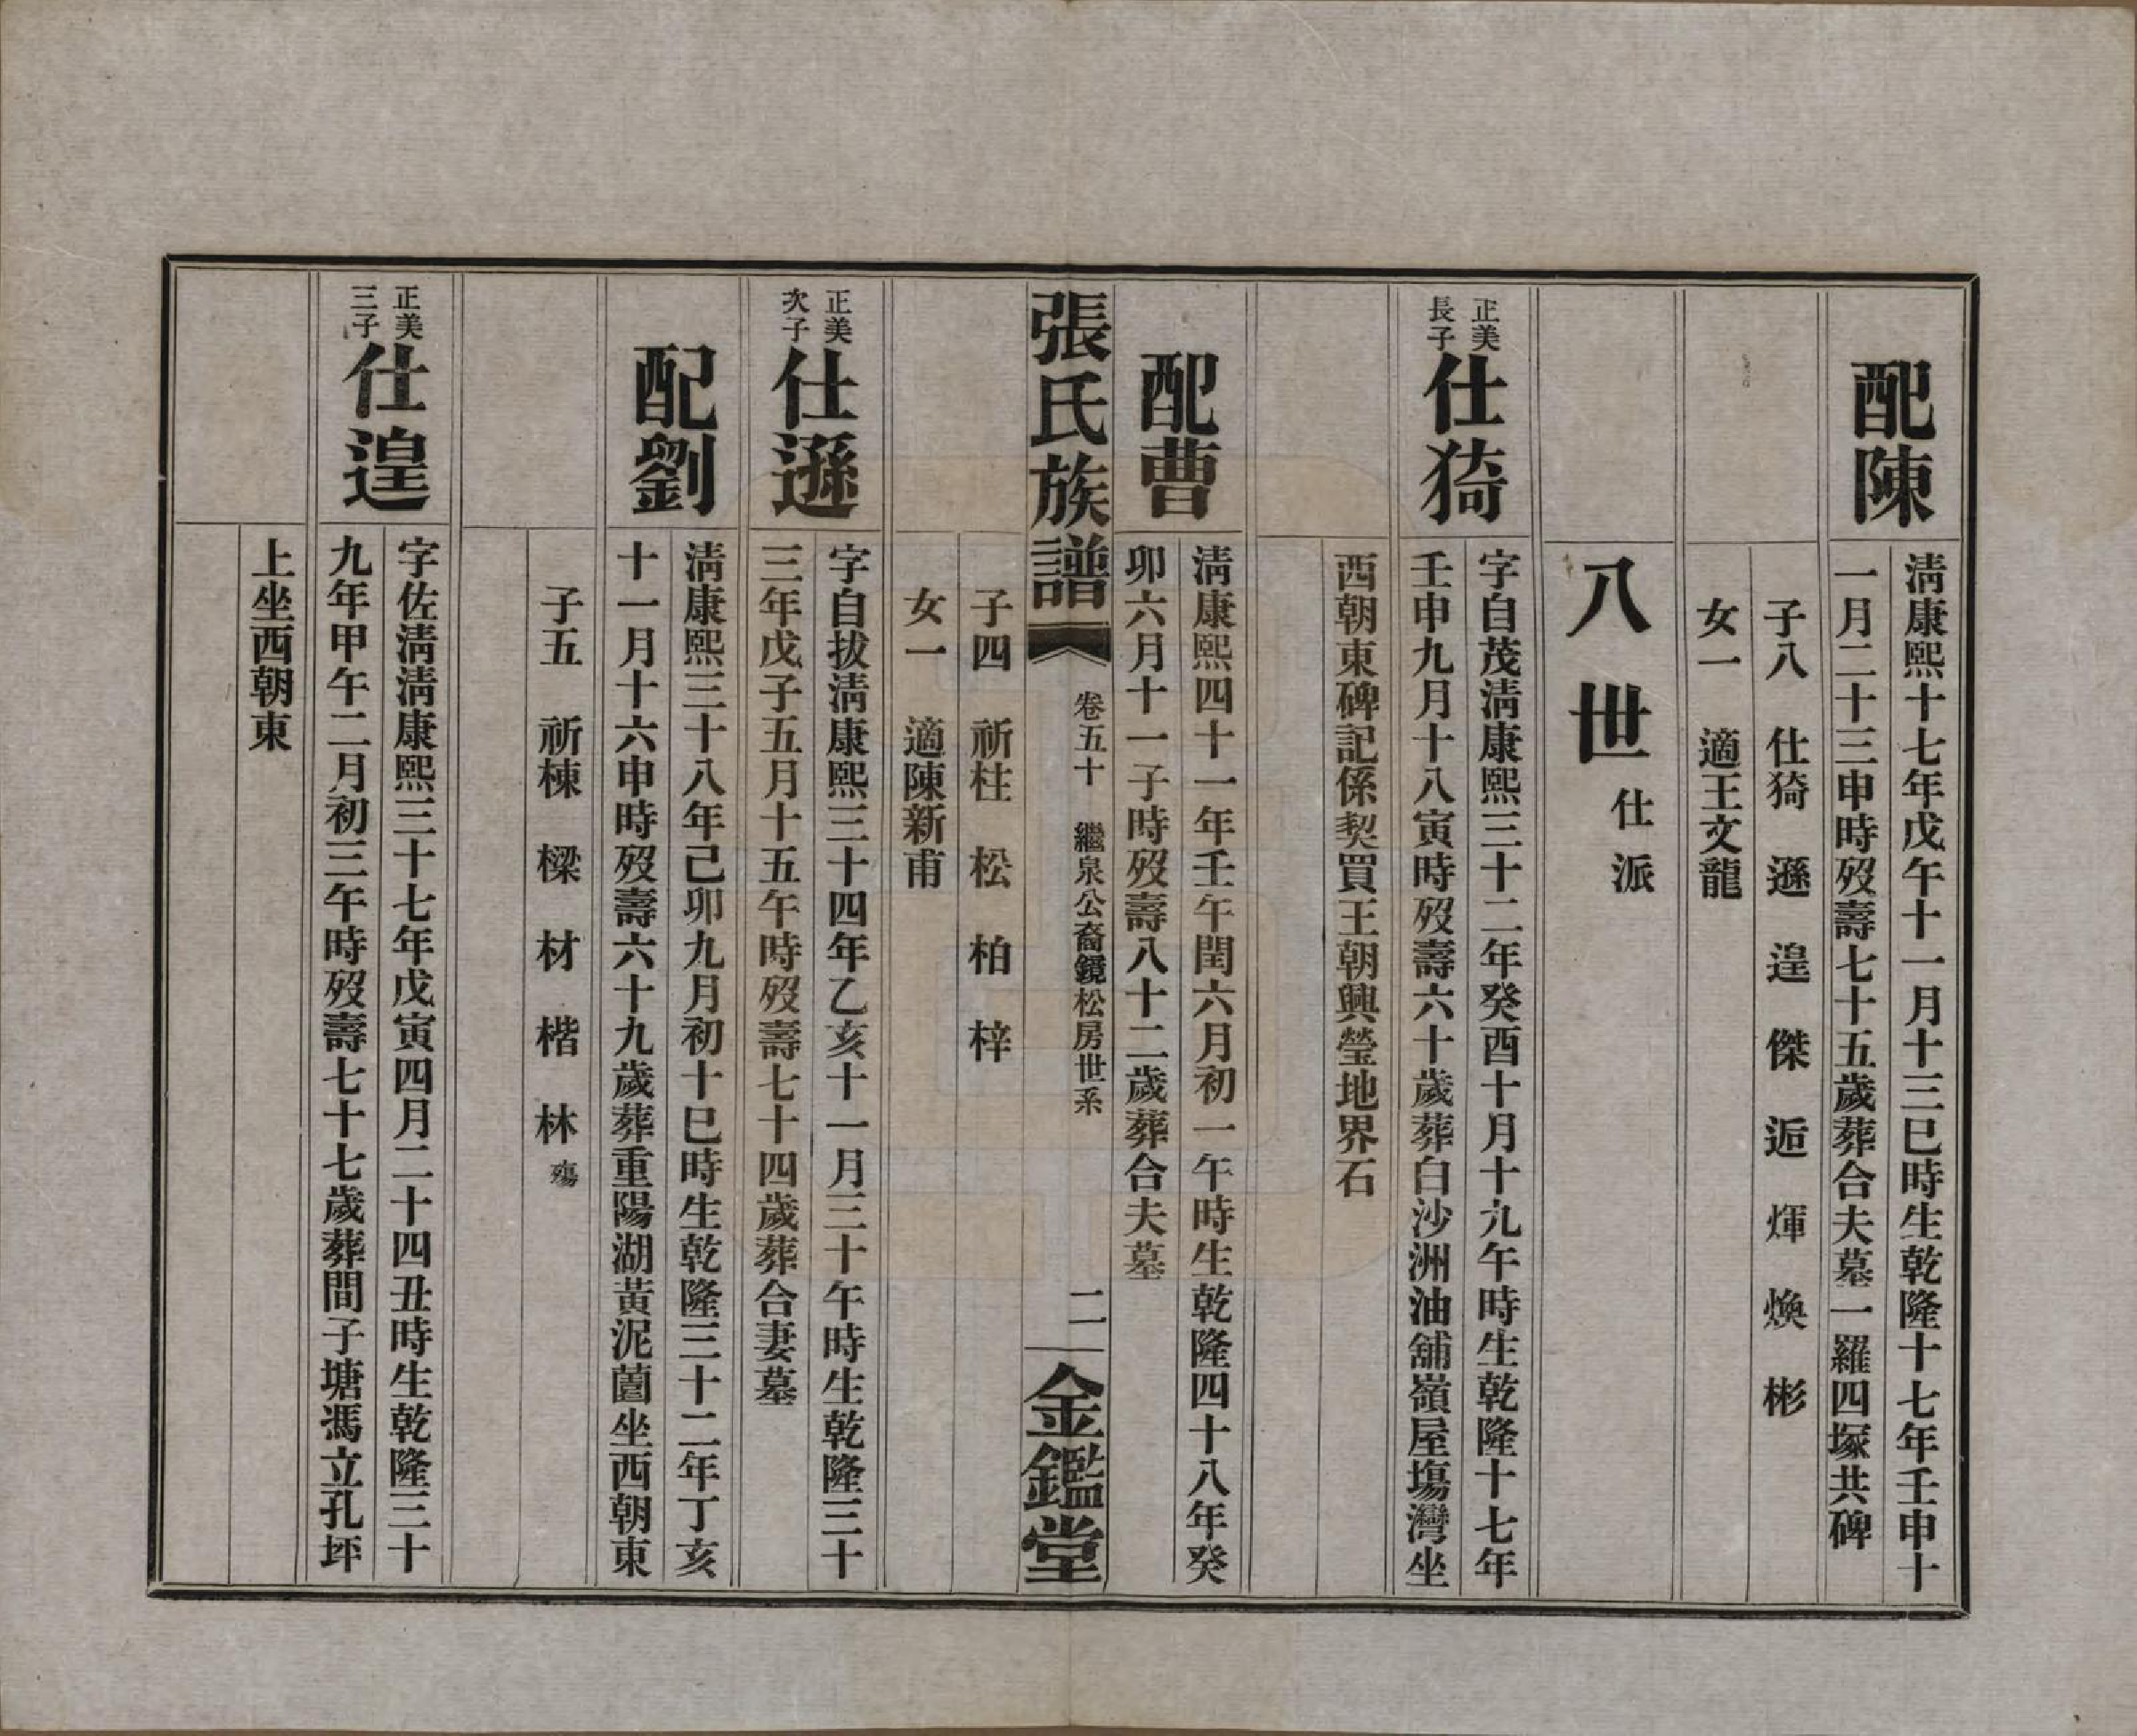 配陳
清康熙十七年戊午十一月十三巳時生乾隆十七年壬申十
一月二十三申時歿壽七十五歲葬合夫墓一羅四塚共碑
子八　仕猗　遜　遑　傑　逅　煇　煥　彬
女一　適王文龍
八世 仕派
正美
長子
仕猗
字自茂清康熙三十二年癸酉十月十九午時生乾隆十七年
壬申九月十八寅時歿壽六十歲葬白沙洲油舖嶺屋塲灣坐
西朝東碑記係契買王朝興塋地界石
配曹
清康熙四十一年壬午閏六月初一午時生乾隆四十八年癸
卯六月十一子時歿壽八十二歲葬合夫墓
張氏族譜　卷五十　繼泉公裔鏡松房世系　二　金鑑堂
子四　祈柱　松　柏　梓
女一　適陳新甫
正美
次子
仕遜
字自拔清康熙三十四年乙亥十一月三十午時生乾隆三十
三年戊子五月十五午時歿壽七十四歲葬合妻墓
配劉
清康熙三十八年己卯九月初十巳時生乾隆三十二年丁亥
十一月十六申時歿壽六十九歲葬重陽湖黃泥薗坐西朝東
子五　祈棟　樑　材　楷　林殤
正美
三子
仕遑
字佐清清康熙三十七年戊寅四月二十四丑時生乾隆三十
九年甲午二月初三午時歿壽七十七歲葬間子塘馮立孔坪
上坐西朝東